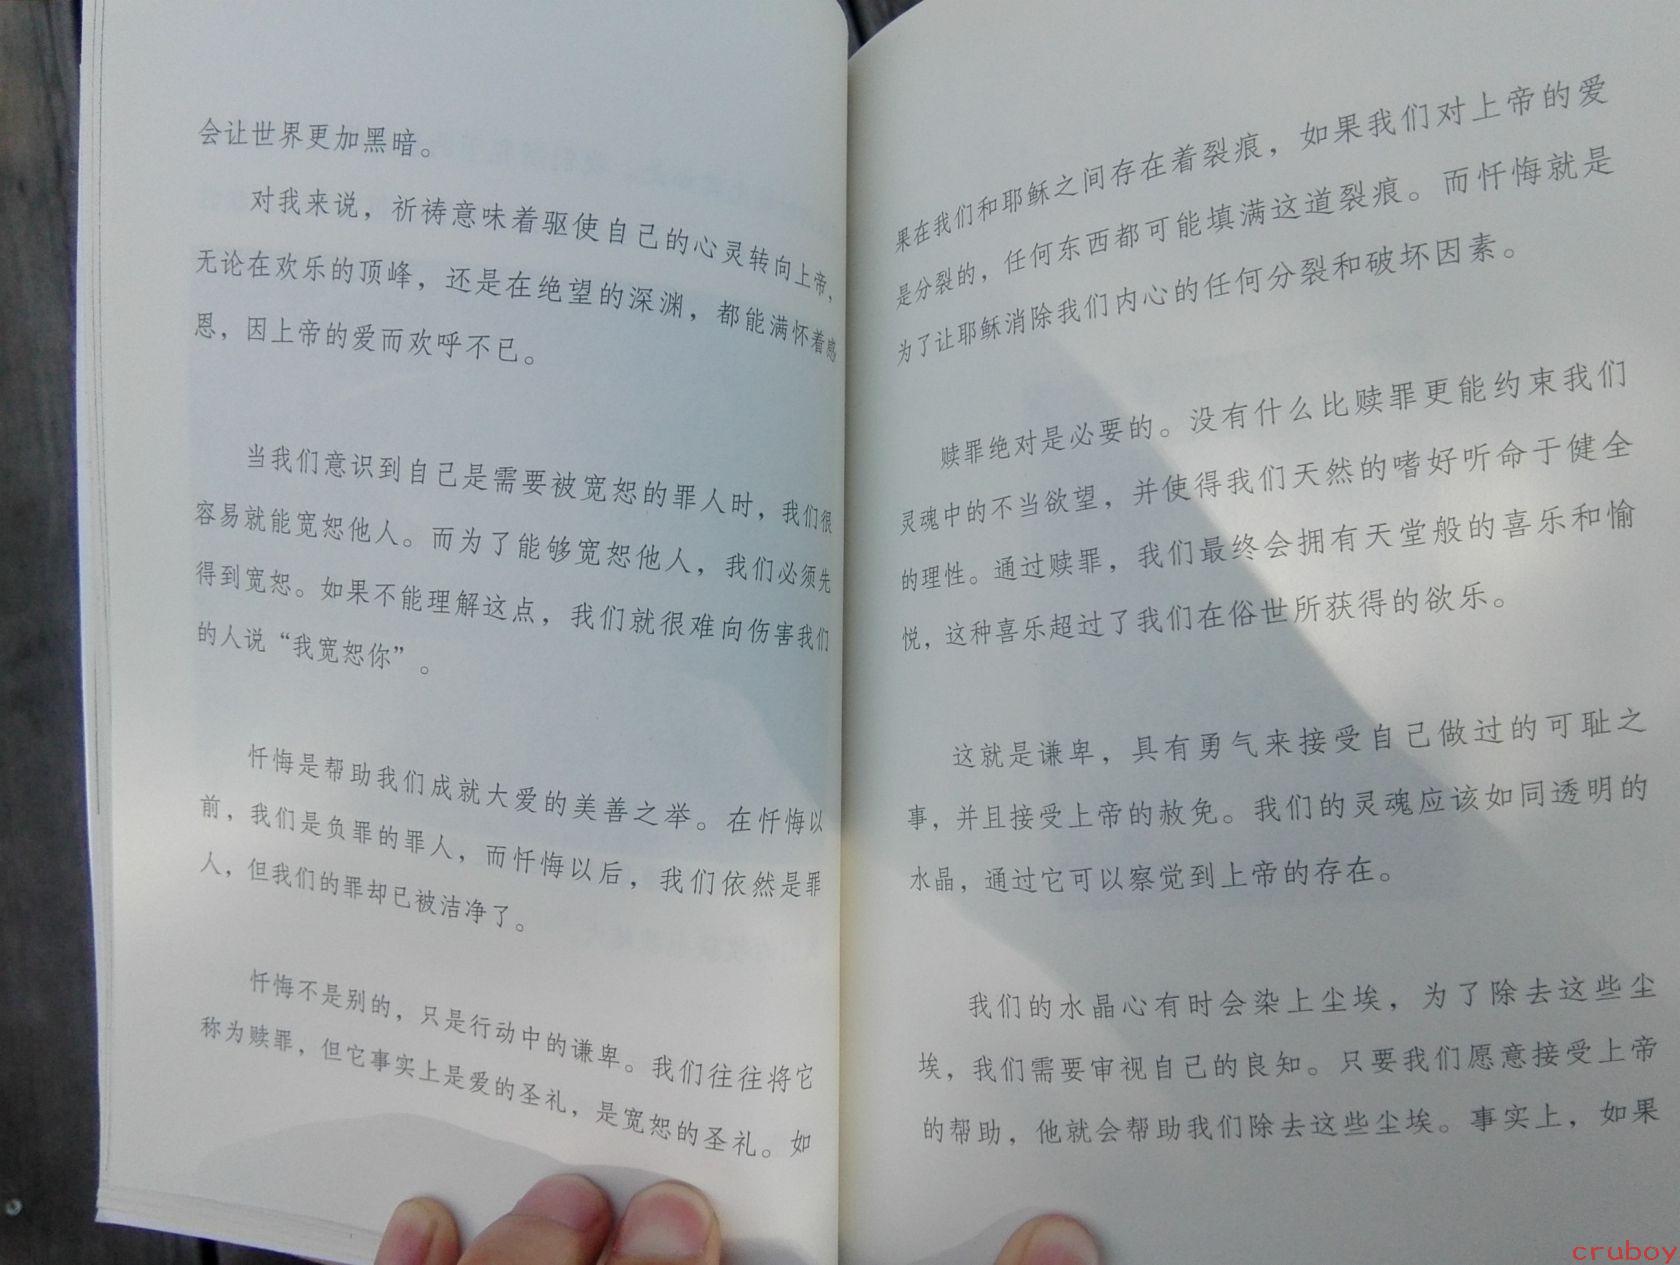 会让世界更加黑暗。
对我来说，祈祷意味着驱使自己的心灵转向上帝，
无论在欢乐的顶峰，还是在绝望的深渊，都能满怀着感
恩，因上帝的爱而欢呼不已。
当我们意识到自己是需要被宽恕的罪人时，我们很
容易就能宽恕他人。而为了能够宽恕他人，我们必须先
得到宽恕。如果不能理解这点，我们就很难向伤害我们
的人说“我宽恕你”。
忏悔是帮助我们成就大爱的美善之举。在忏悔以
前，我们是负罪的罪人，而忏悔以后，我们依然是罪
人，但我们的罪却已被洁净了。
忏悔不是别的，只是行动中的谦卑。我们往往将它
称为赎罪，但它事实上是爱的圣礼，是宽恕的圣礼。如
果在我们和耶稣之间存在着裂痕，如果我们对上帝的爱
是分裂的，任何东西都可能填满这道裂痕。而忏悔就是
为了让耶稣消除我们内心的任何分裂和破坏因素。
赎罪绝对是必要的。没有什么比赎罪更能约束我们
灵魂中的不当欲望，并使得我们天然的嗜好听命于健全
的理性。通过赎罪，我们最终会拥有天堂般的喜乐和愉
悦，这种喜乐超过了我们在俗世所获得的欲乐。
这就是谦卑，具有勇气来接受自己做过的可耻之
事，并且接受上帝的赦免。我们的灵魂应该如同透明的
水晶，通过它可以察觉到上帝的存在。
我们的水晶心有时会染上尘埃，为了除去这些尘
埃，我们需要审视自己的良知。只要我们愿意接受上帝
的帮助，他就会帮助我们除去这些尘埃。事实上，如果
cruboy